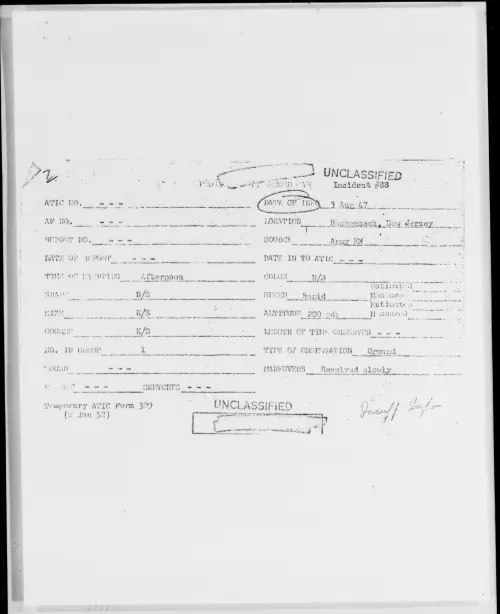 UNCLASSIFIED
Incident #88
ATIC NO. - - - DATE OF INFO 3 Aug 47
AF NO. - - - LOCATION Hackensack, New Jersey
REPORT NO. - - - SOURCE Army
DATE OF REPORT - - - DATE IN TO ATIC - - -
TIME OF SIGHTING Afternoon COLOR N/S
SHAPE N/S SPEED Rapid
SIZE N/S ALTITUDE 200 yds
COURSE N/S LENGTH OF TIME OBSERVED - - -
NO. IN GROUP 1 TYPE OF OBSERVATION Ground
SOUND - - - MANEUVERS Revolved slowly
- - - SKETCHES - - -
Temporary ATIC Form 329
(2 Jan 52)
UNCLASSIFIED
Insuff Info